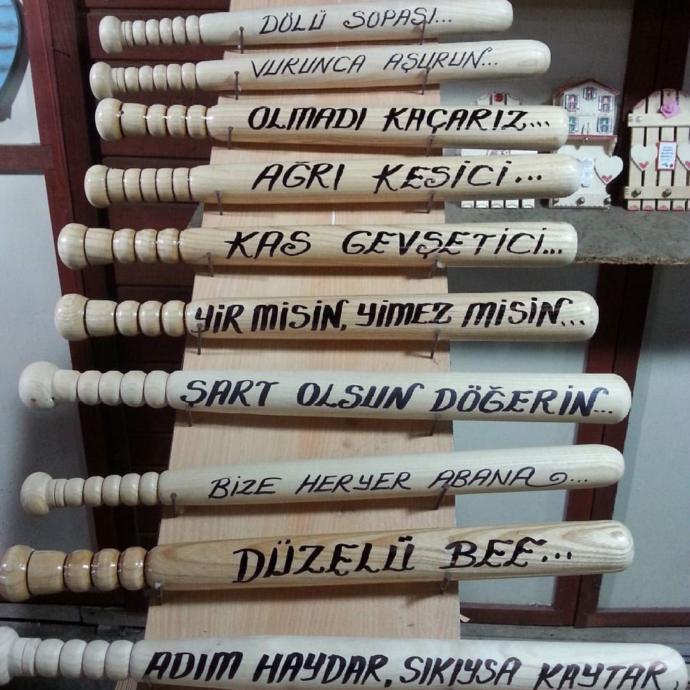 DÖLÜ SOPASI...
VURUNCA AŞURUN...
OLMADI KAÇARIZ...
AĞRI KESİCİ...
KAS GEVŞETİCİ...
YİR MİSİN, YİMEZ MİSİN...
ŞART OLSUN DÖĞERİN...
BİZE HERYER ABANA...
DÜZELÜ BEE...
ADIM HAYDAR, SIKIYSA KAYTAR